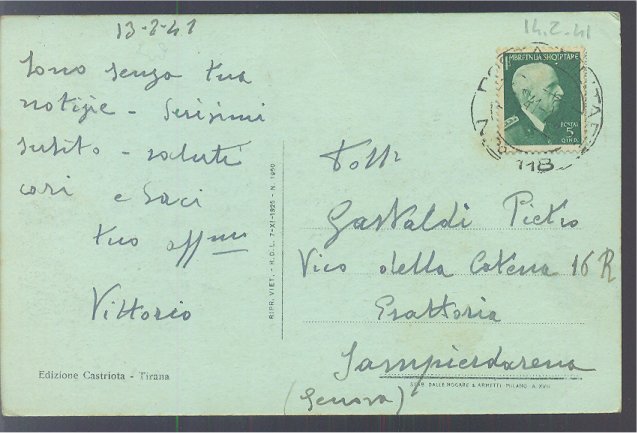 13-2-41
14.2.41
Sono senza tua
notizie - Scrivimi
subito - saluti
cari e baci
tuo aff.mo
Vittorio
MBRETNIJA SHQIPTARE
POSTAT
5
QIND.
POSTA MILITARE
N.
118
Gastaldi Pietro
Vico della Catena 16 R
Trattoria
Sampierdarena
(Genova)
RIPR. VIET. - R.D.L. 7-XI-1925 - N. 1950
Edizione Castriota - Tirana
DALLE NOGARE & ARMETTI MILANO A. XVII